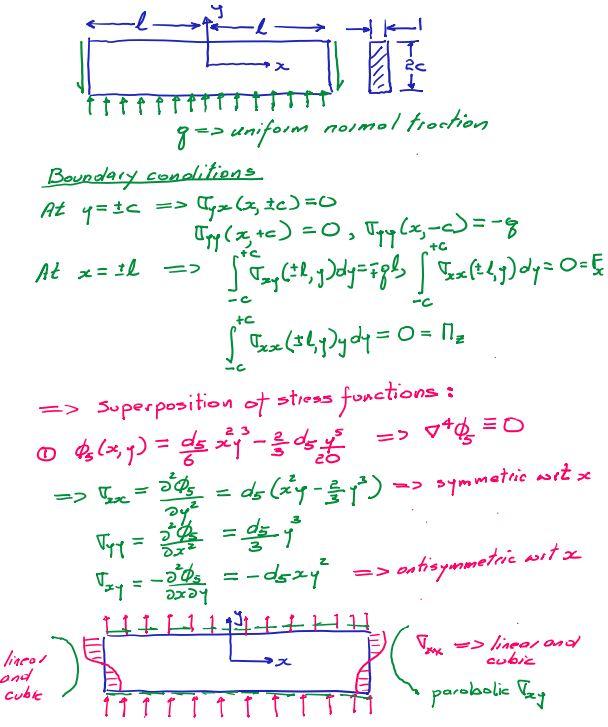 l y l 1
x 2c
q => uniform normal traction
Boundary conditions
At y = ±c => σyx(x, ±c) = 0
σyy(x, +c) = 0 , σyy(x, -c) = -q
At x = ±l => ∫_{-c}^{+c} σxy(±l, y) dy = ∓ql, ∫_{-c}^{+c} σxx(±l, y) dy = 0 = Fx
∫_{-c}^{+c} σxx(±l, y) y dy = 0 = Mz
=> Superposition of stress functions :
① φ5(x, y) = d5/6 x²y³ - 2/3 d5 y⁵/20 => ∇⁴φ5 ≡ 0
=> σxx = ∂²φ5/∂y² = d5(x²y - 2/3 y³) => symmetric wrt x
σyy = ∂²φ5/∂x² = d5/3 y³
σxy = -∂²φ5/∂x∂y = -d5xy² => antisymmetric wrt x
y
x
linear and cubic
σxx => linear and cubic
parabolic σxy